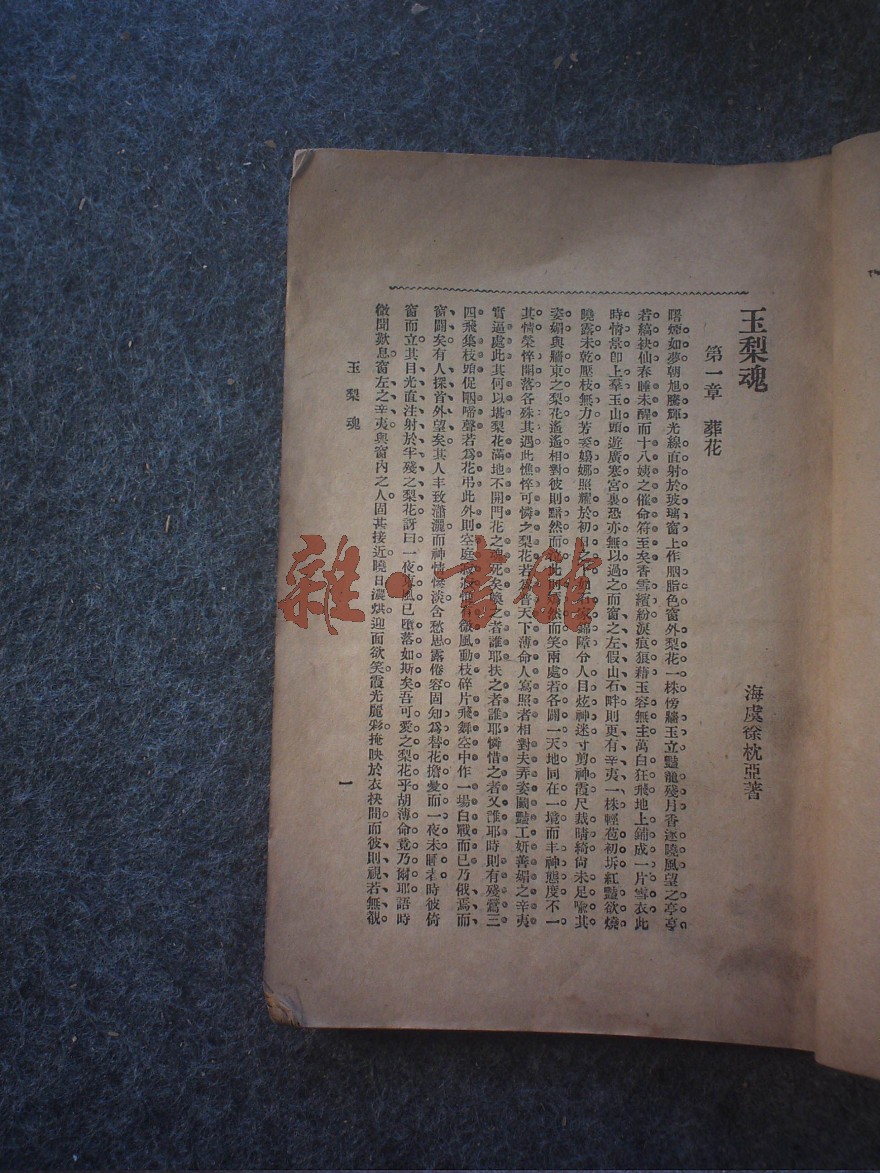 玉梨魂
海虞徐枕亞著
第一章 葬花
曙煙如夢朝旭騰輝光線直射於玻璃窗上作胭脂色窗外梨花一株傍牆玉立豔籠殘月香逐曉風望之亭亭
若縞袂仙春睡未醒而十八姨之催命符至矣香雪繽紛淚痕狼藉玉容無主萬白狂飛地上鋪成一片雪衣此
時情景卽上羣玉山頭遊廣寒宮裏恐亦無以過之而窗之左假山石畔則更有辛夷一株輕苞初坼紅豔欲燒
曉露未乾壓枝無力芳姿嬝娜照耀於初日之下如石家錦障令人目炫神迷寸剪神霞尺裁晴綺尙未足喩其
姿媚與牆東之梨花遙遙相對彼則黯然而泣此則嫣然而笑兩處若各闢一天地同在一境而丰神態度不一
其情榮悴開落各殊其遇此憔悴可憐之梨花若爲普天下薄命人寫照者相對夫弄姿鬬豔工妍善媚之辛夷
實逼處此其何以堪梨花滿地不開門花之魂死矣喚之者誰耶扶之者誰耶憐惜之者又誰耶時則有殘鶯三
四飛集枝頭促咽啼聲若爲花弔此外則空庭寂寂惟有微風動枝碎片飛舞空中作一場白戰而已乃俄焉而
窗闢矣有人探首外望矣其人丰致瀟灑而神情慘淡含愁思露倦容固知爲替花擔憂而一夜未睡者時彼倚
窗而立其目光直注射於半殘之梨花訝曰一夜東風已墮落如斯矣吾可愛之梨花乎胡薄命竟乃爾耶語時
微聞歎息窗左之辛夷與窗內之人固甚接近曉日濃烘迎面欲笑霞光麗彩掩映於衣袂間而彼則視若無覩
玉梨魂
一
雜·書館